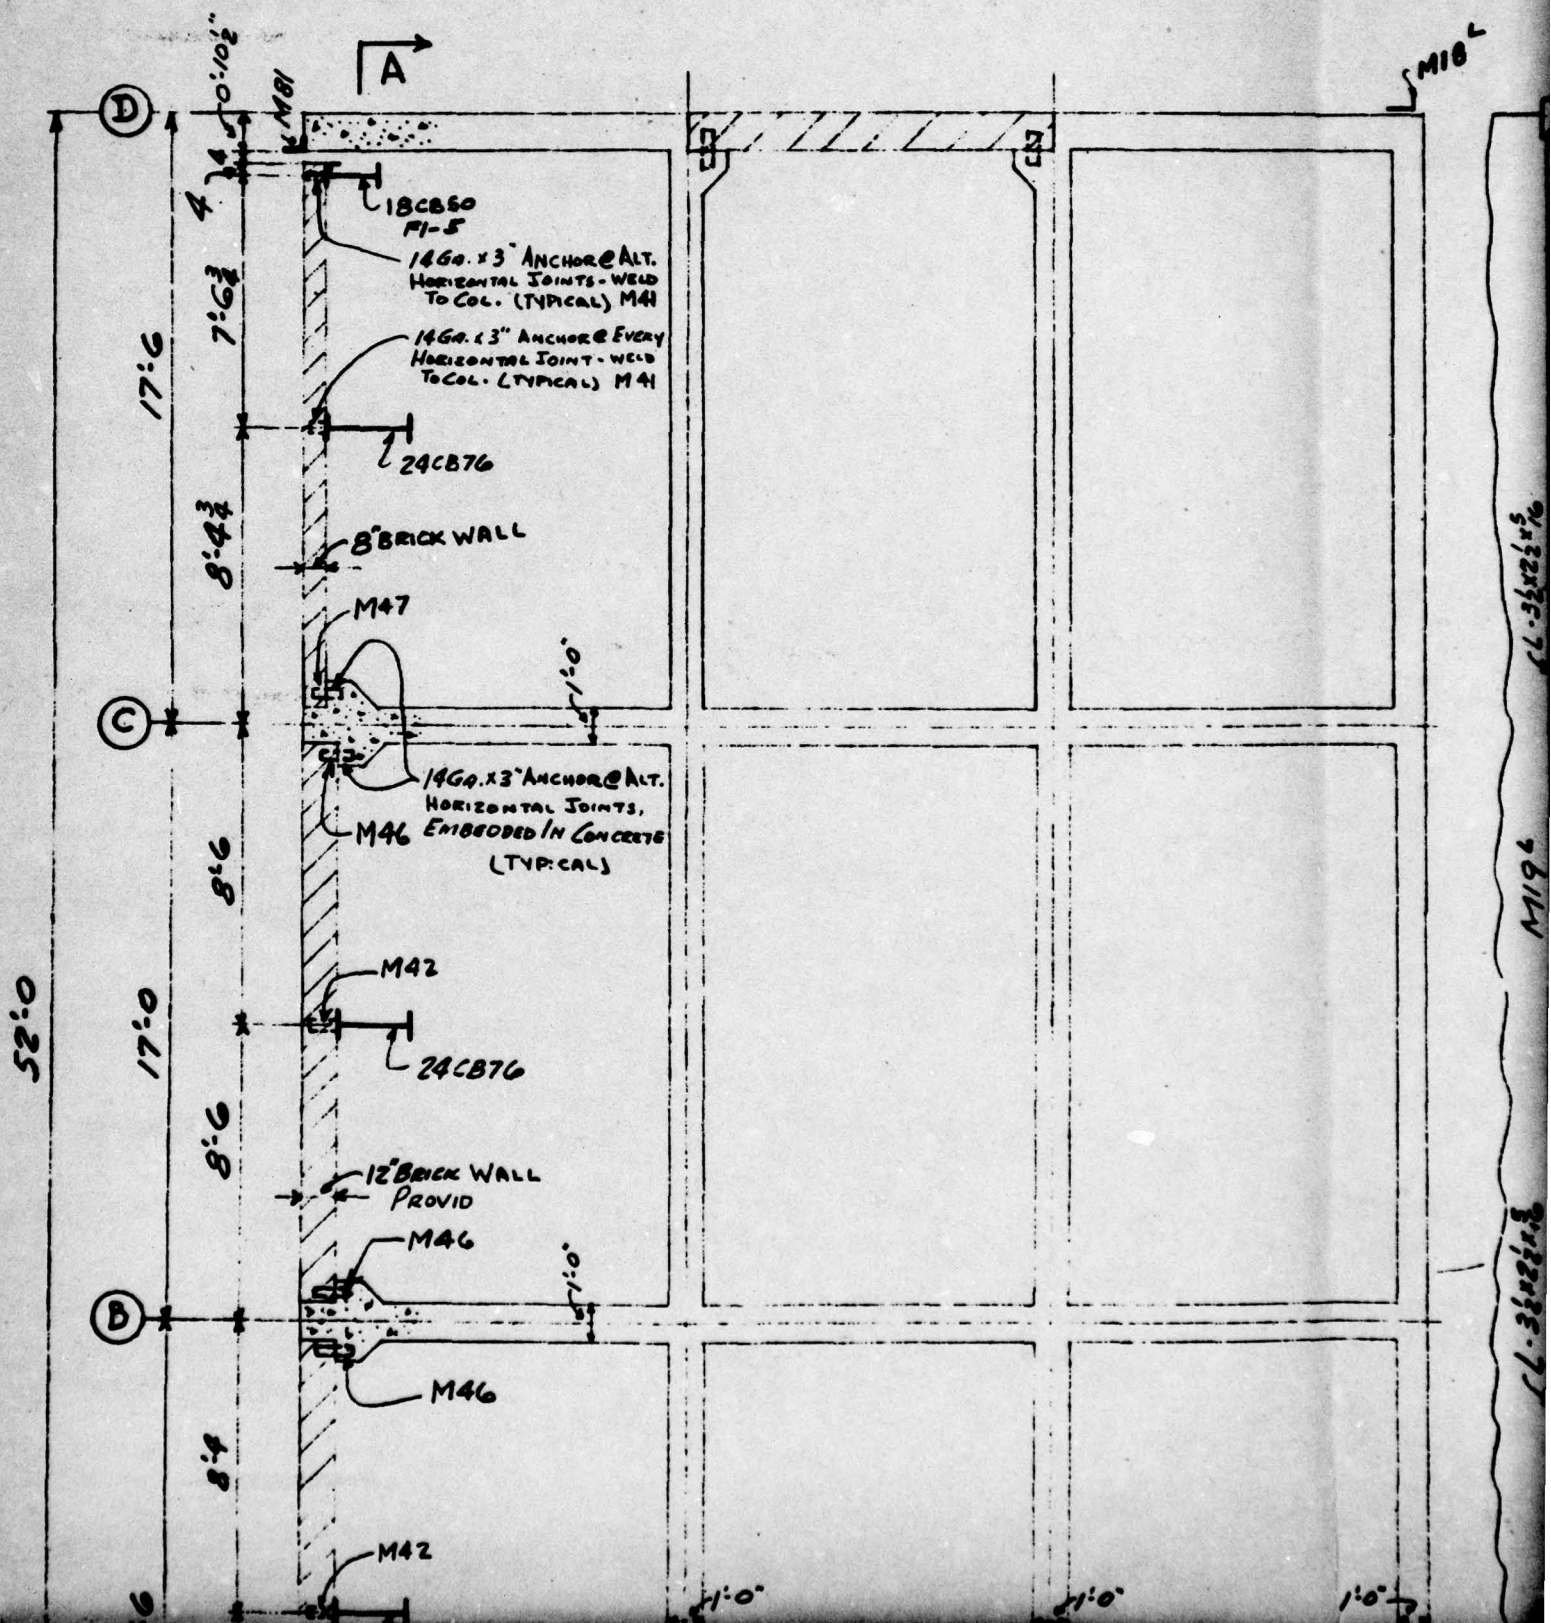 A
M18 L
D
0'-10½"
M81
4
4
18CB50
F1-5
14GA. x 3" ANCHOR @ ALT.
HORIZONTAL JOINTS - WELD
TO COL. (TYPICAL) M41
7'-6¾
17'-6
14GA. x 3" ANCHOR @ EVERY
HORIZONTAL JOINT - WELD
TO COL. (TYPICAL) M41
24CB76
8'-4¾
8" BRICK WALL
M47
1'-0"
C
14GA. x 3" ANCHOR @ ALT.
HORIZONTAL JOINTS,
EMBEDDED IN CONCRETE
(TYPICAL)
M46
8'-6
M42
52'-0
17'-0
24CB76
8'-6
12" BRICK WALL
PROVID
M46
1'-0"
B
M46
8'-4
M42
6
1'-0"
1'-0"
1'-0"
L-3½x2½x5/16
M19 L
L-3½x2½x5/16